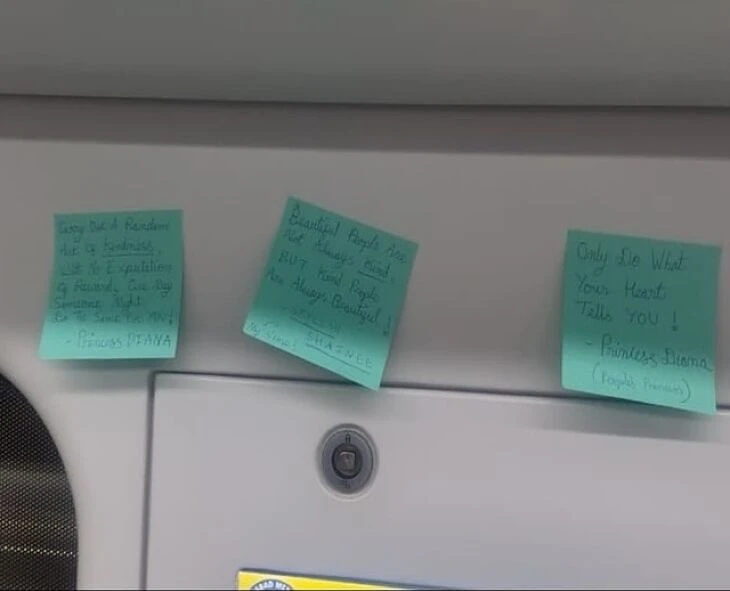 Carry Out A Random
Act Of Kindness,
With No Expectation
Of Reward, One Day
Someone Might
Do The Same For YOU!
- Princess DIANA
Beautiful People Are
Not Always Kind,
BUT Kind People
Are Always Beautiful!
SHAINEE
Only Do What
Your Heart
Tells YOU!
- Princess Diana
(People's Princess)